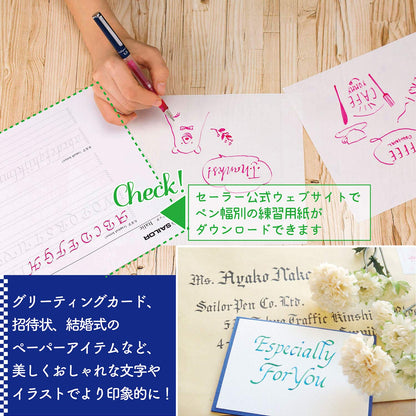 Thanks!
CAFE
COFFEE
Check!
セーラー公式ウェブサイトで
ペン幅別の練習用紙が
ダウンロードできます
SAILOR
Italic
A B C D E F G H
グリーティングカード、
招待状、結婚式の
ペーパーアイテムなど、
美しくおしゃれな文字や
イラストでより印象的に!
Ms. Ayako Nake
Sailor Pen Co. Ltd.
Tokyo Traffic Kinshi
Especially
For You